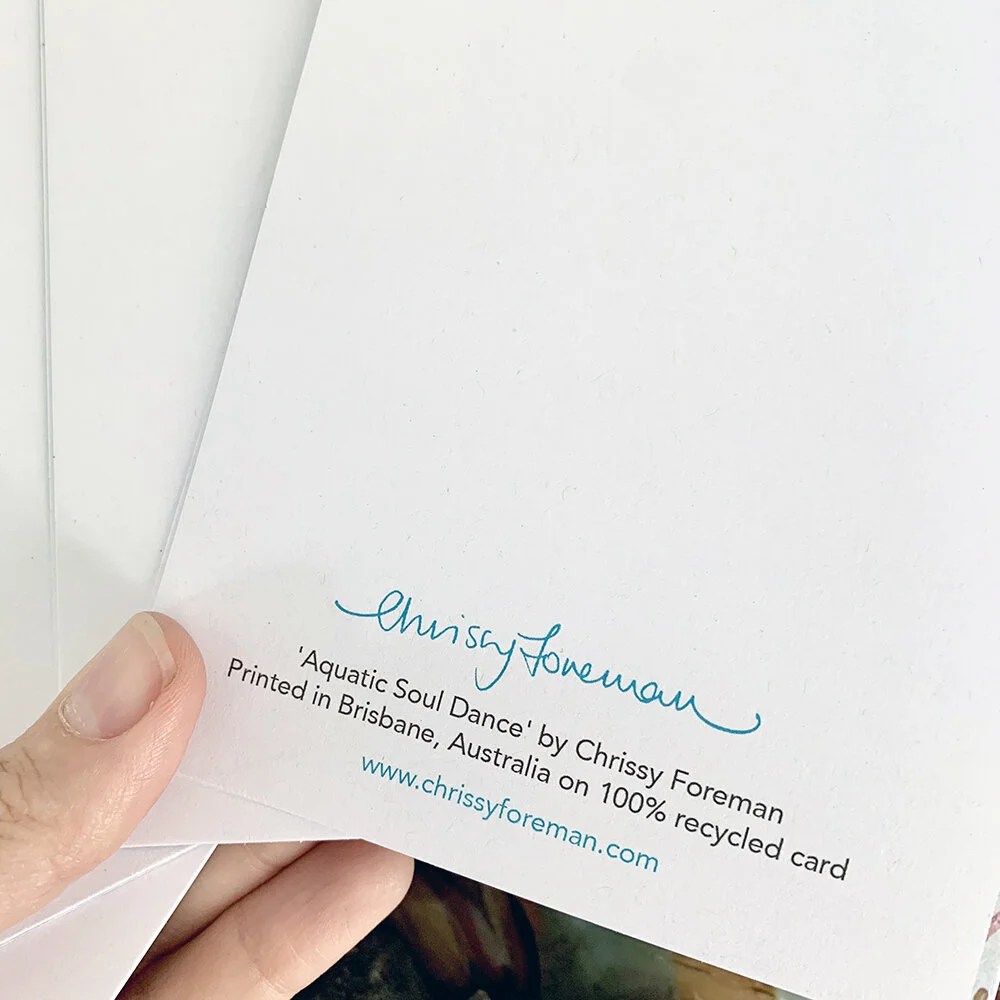 Chrissy Foreman
'Aquatic Soul Dance' by Chrissy Foreman
Printed in Brisbane, Australia on 100% recycled card
www.chrissyforeman.com